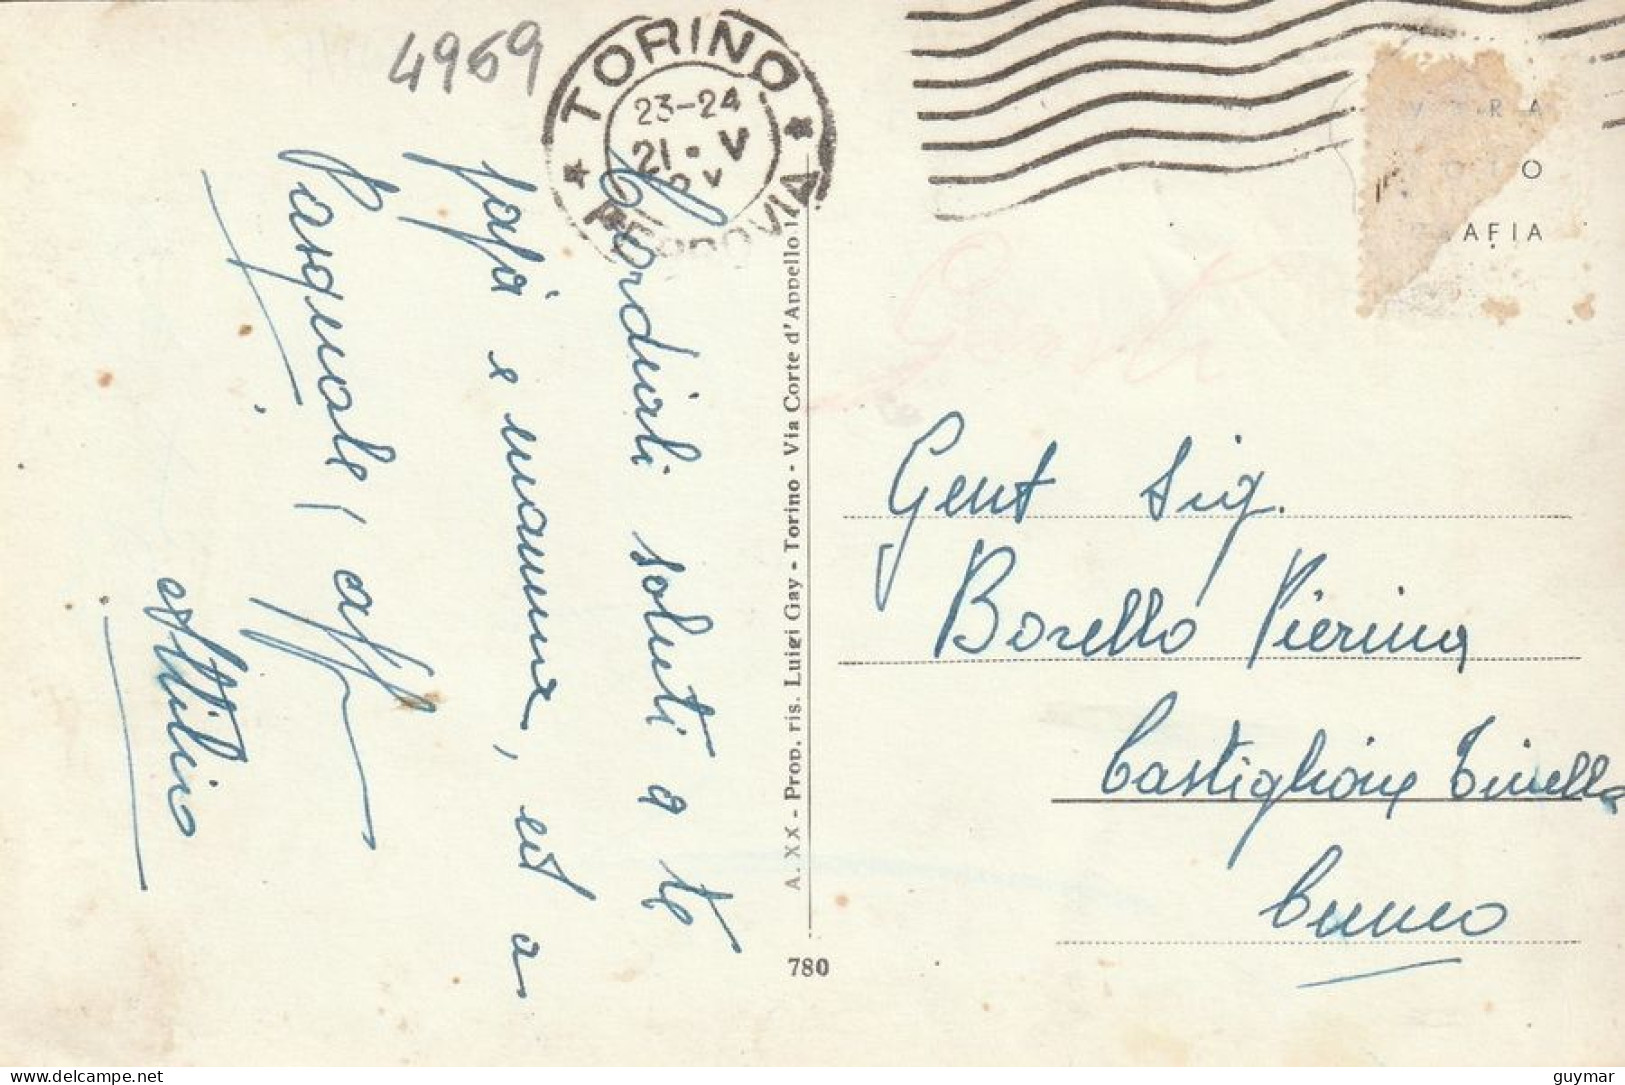 4959
TORINO
23-24
21 · V
FERROVIA
Cordiali saluti a te
papà e mamma, ed a
Pasquale, aff
Attilio
A. XX - Prop. ris. Luigi Gay - Torino - Via Corte d'Appello 1
780
VERA
FOTO
GRAFIA
Gent Sig.
Borello Pierina
Castiglione Tinella
Cuneo
guymar